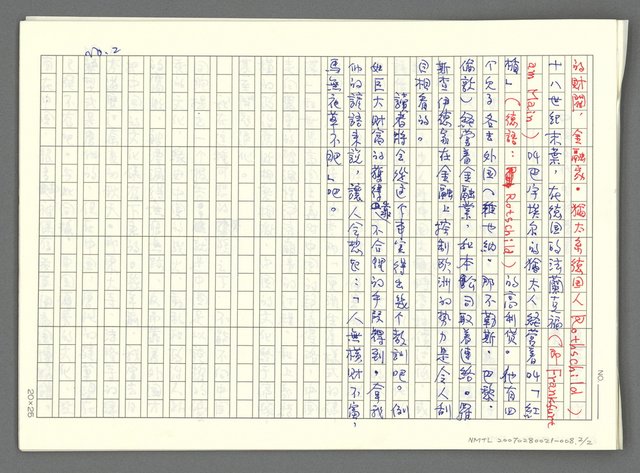 No. 2
的財閥，金融家。猶太系德国人 Rothschild）
十八世紀末葉，在德国的法蘭克福（Frankfurt
am Main）叫巴字埃尔的猶太人經营着叫「紅
楯」（德語：Rotschild）的高利貸。他有四
个兒子各去外国（維也納。那不勒斯。巴黎。
倫敦）經营着金融業，和本公司取着連絡。羅
斯查伊德家在金融上控制欧洲的势力是令人刮
目相看的。
讀者將会從這个事实得出幾个教訓吧。例
如巨大财富的獲得是最不合理的手段得到。拿我
们的諺語来説，讓人会想起：「人無横財不富，
馬無夜草不肥」吧。
NO.
20×25
NMTL 20070280021-008. 2/2